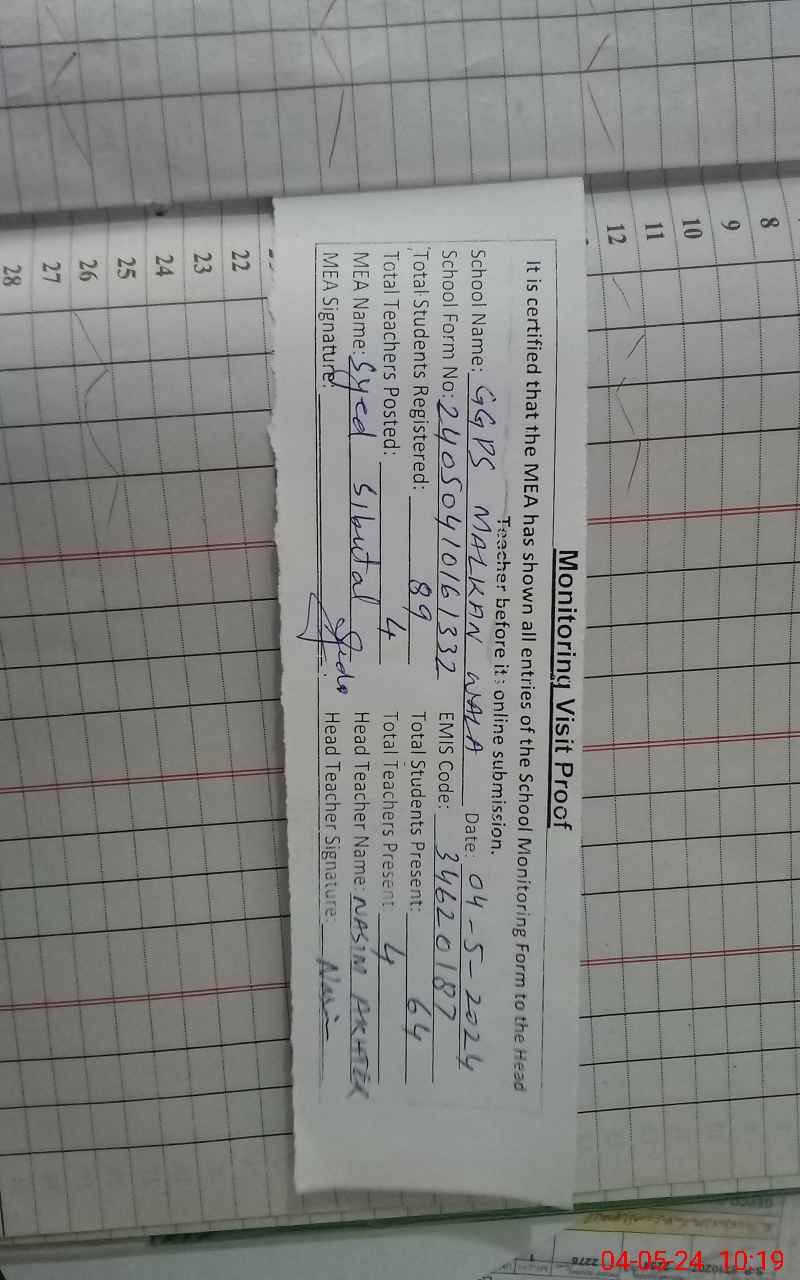 Monitoring Visit Proof
It is certified that the MEA has shown all entries of the School Monitoring Form to the Head
Teacher before its online submission.
School Name: GGPS MALKAN WALA Date: 04-5-2024
School Form No: 24050410161332 EMIS Code: 34620187
Total Students Registered: 89 Total Students Present: 64
Total Teachers Posted: 4 Total Teachers Present: 4
MEA Name: Syed Sibutal Head Teacher Name: NASIM AKHTER
MEA Signature: Head Teacher Signature: Nasim
8
9
10
11
12
22
23
24
25
26
27
28
04-05-24 10:19